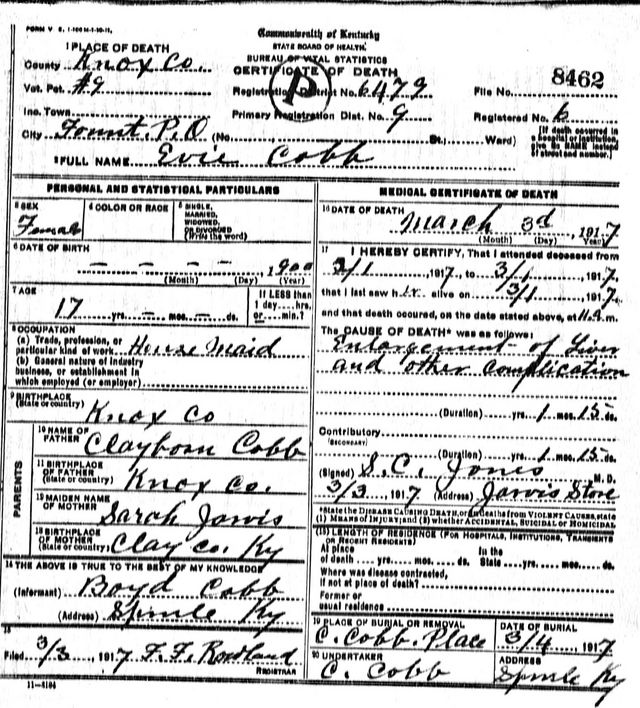 FORM V. S. 1-
Commonwealth of Kentucky
STATE BOARD OF HEALTH.
BUREAU OF VITAL STATISTICS
CERTIFICATE OF DEATH
1 PLACE OF DEATH
County Knox Co.
Vot. Pct. #9
Inc. Town
City Fount. P.O (No. St., Ward)
Registration District No. 6479
Primary Registration Dist. No. 9
P
8462
File No.
Registered No. 6
[If death occurred in a hospital or institution, give its NAME instead of street and number.]
2 FULL NAME Evie Cobb
PERSONAL AND STATISTICAL PARTICULARS
3 SEX
Female
4 COLOR OR RACE
5 SINGLE, MARRIED, WIDOWED, OR DIVORCED (Write the word)
6 DATE OF BIRTH
– – – –, 1900
(Month) (Day) (Year)
7 AGE
17 yrs. – mos. – ds.
If LESS than 1 day....hrs. or....min.?
8 OCCUPATION
(a) Trade, profession, or particular kind of work House Maid
(b) General nature of industry
business, or establishment in
which employed (or employer)
9 BIRTHPLACE
(State or country) Knox Co
PARENTS
10 NAME OF FATHER Clayborn Cobb
11 BIRTHPLACE OF FATHER (State or country) Knox Co.
12 MAIDEN NAME OF MOTHER Sarah Jarvis
13 BIRTHPLACE OF MOTHER (State or country) Clay Co. Ky
14 THE ABOVE IS TRUE TO THE BEST OF MY KNOWLEDGE
(Informant) Boyd Cobb
(Address) Ky
15
Filed 3/3, 1917 F. F.
REGISTRAR
11-
MEDICAL CERTIFICATE OF DEATH
16 DATE OF DEATH
March 3d, 1917
(Month) (Day) (Year)
17 I HEREBY CERTIFY, That I attended deceased from
3/1, 1917, to 3/1, 1917,
that I last saw h.ir alive on 3/1, 1917,
and that death occured, on the date stated above, at 11.a.m.
The CAUSE OF DEATH* was as follows:
Enlargement of Liver
and other complication
(Duration) yrs. 1 mos. 15 ds.
Contributory
(SECONDARY)
(Duration) yrs. 1 mos. 15 ds.
(Signed) S. C. Jones M. D.
3/3, 1917 (Address) Jarvis Store
*State the DISEASE CAUSING DEATH, or in deaths from VIOLENT CAUSES, state
(1) MEANS OF INJURY; and (2) whether ACCIDENTAL, SUICIDAL or HOMICIDAL
(18) LENGTH OF RESIDENCE (FOR HOSPITALS, INSTITUTIONS, TRANSIENTS OR RECENT RESIDENTS)
At place of death yrs. mos. ds. In the State yrs. mos. ds.
Where was disease contracted,
if not at place of death?
Former or
usual residence
19 PLACE OF BURIAL OR REMOVAL
C. Cobb. Place
DATE OF BURIAL
3/4, 1917
20 UNDERTAKER
C. Cobb
ADDRESS
Ky